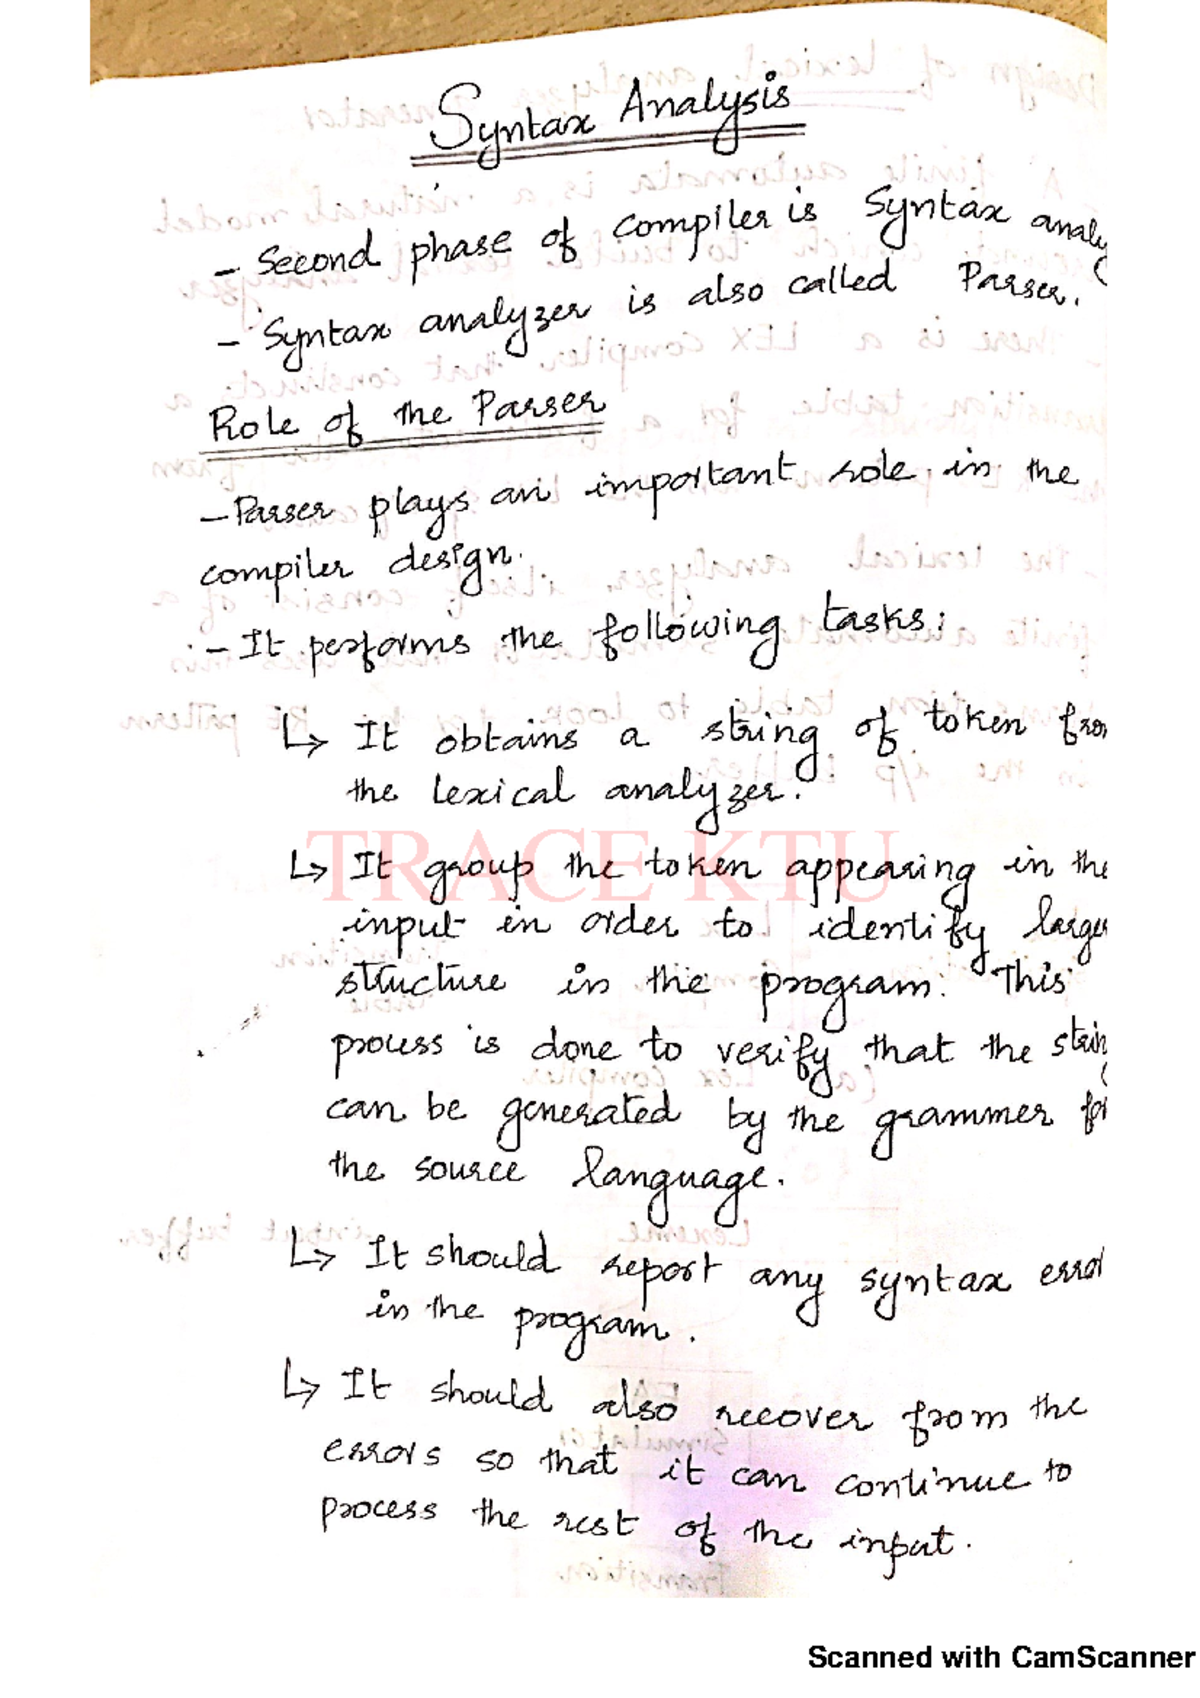 Syntax Analysis
- Second phase of compiler is Syntax analy
- Syntax analyzer is also called Parser.
Role of the Parser
- Parser plays an important role in the
compiler design.
- It performs the following tasks:
↳ It obtains a string of token from
the lexical analyzer.
TRACE KTU
↳ It group the token appearing in the
input in order to identify larger
structure in the program. This
process is done to verify that the string
can be generated by the grammer for
the source language.
↳ It should report any syntax error
in the program.
↳ It should also recover from the
errors so that it can continue to
process the rest of the input.
Scanned with CamScanner